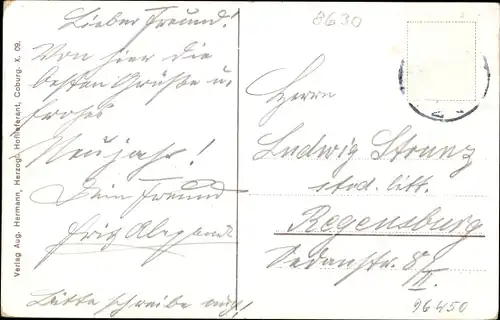 Lieber Freund!
Von hier die
besten Grüße u.
frohes
Neujahr!
Dein Freund
Fritz
Bitte schreibe mir!
Verlag Aug. Hermann, Herzogl. Hoflieferant, Coburg. X. 09.
8630
Herrn
Ludwig Stranz
stod. litt.
Regensburg
Sedanstr. 8/II.
96450